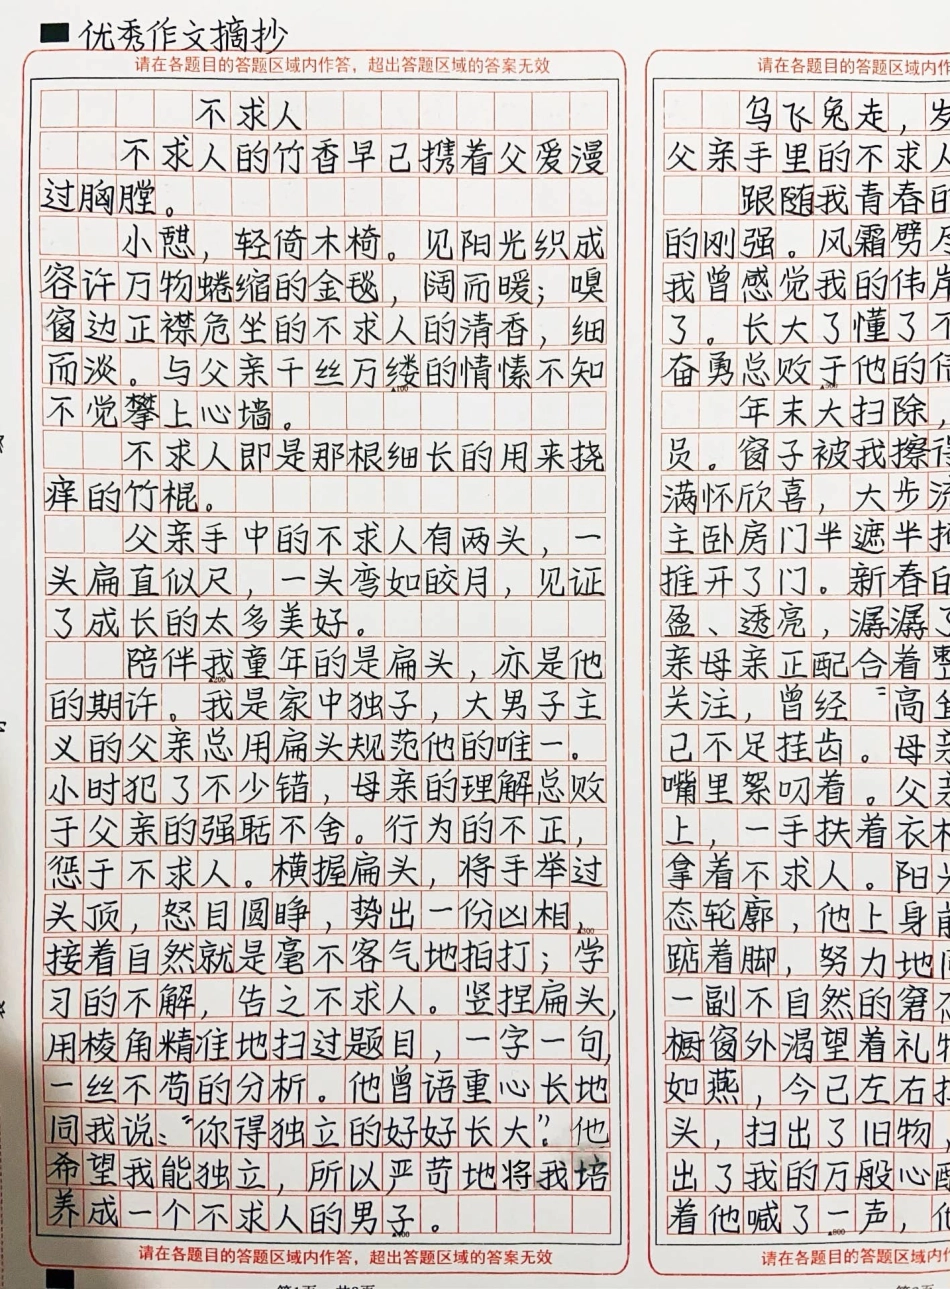 优秀作文摘抄
请在各题目的答题区域内作答，超出答题区域的答案无效
不求人
不求人的竹香早已携着父爱漫
过胸膛。
小憩，轻倚木椅。见阳光织成
容许万物蜷缩的金毯，阔而暖；嗅
窗边正襟危坐的不求人的清香，细
而淡。与父亲千丝万缕的情愫不知
▲100
不觉攀上心墙。
不求人即是那根细长的用来挠
痒的竹棍。
父亲手中的不求人有两头，一
头扁直似尺，一头弯如皎月，见证
了成长的太多美好。
陪伴我童年的是扁头，亦是他
▲200
的期许。我是家中独子，大男子主
义的父亲总用扁头规范他的唯一。
小时犯了不少错，母亲的理解总败
于父亲的强聒不舍。行为的不正，
惩于不求人。横握扁头，将手举过
头顶，怒目圆睁，势出一份凶相，
▲300
接着自然就是毫不客气地拍打；学
习的不解，告之不求人。竖捏扁头，
用棱角精准地扫过题目，一字一句，
一丝不苟的分析。他曾语重心长地
同我说：“你得独立的好好长大”。他
希望我能独立，所以严苛地将我培
养成一个不求人的男子。
▲400
请在各题目的答题区域内作答，超出答题区域的答案无效
请在各题目的答题区域内作
乌飞兔走，岁
父亲手里的不求人
跟随我青春的
的刚强。风霜劈尽
我曾感觉我的伟岸
了。长大了懂了不
奋勇总败于他的倍
年末大扫除，
员。窗子被我擦得
满怀欣喜，大步流
主卧房门半遮半掩
推开了门。新春的
盈、透亮，潺潺了
亲母亲正配合着整
关注，曾经“高金
己不足挂齿。母亲
嘴里絮叨着。父亲
上，一手扶着衣柜
拿着不求人。阳光
态轮廓，他上身前
踮着脚，努力地向
一副不自然的窘态
橱窗外渴望着礼物
如燕，今已左右扌
头，扫出了旧物，
出了我的万般心酸
着他喊了一声，他
▲800
请在各题目的答题区域内作